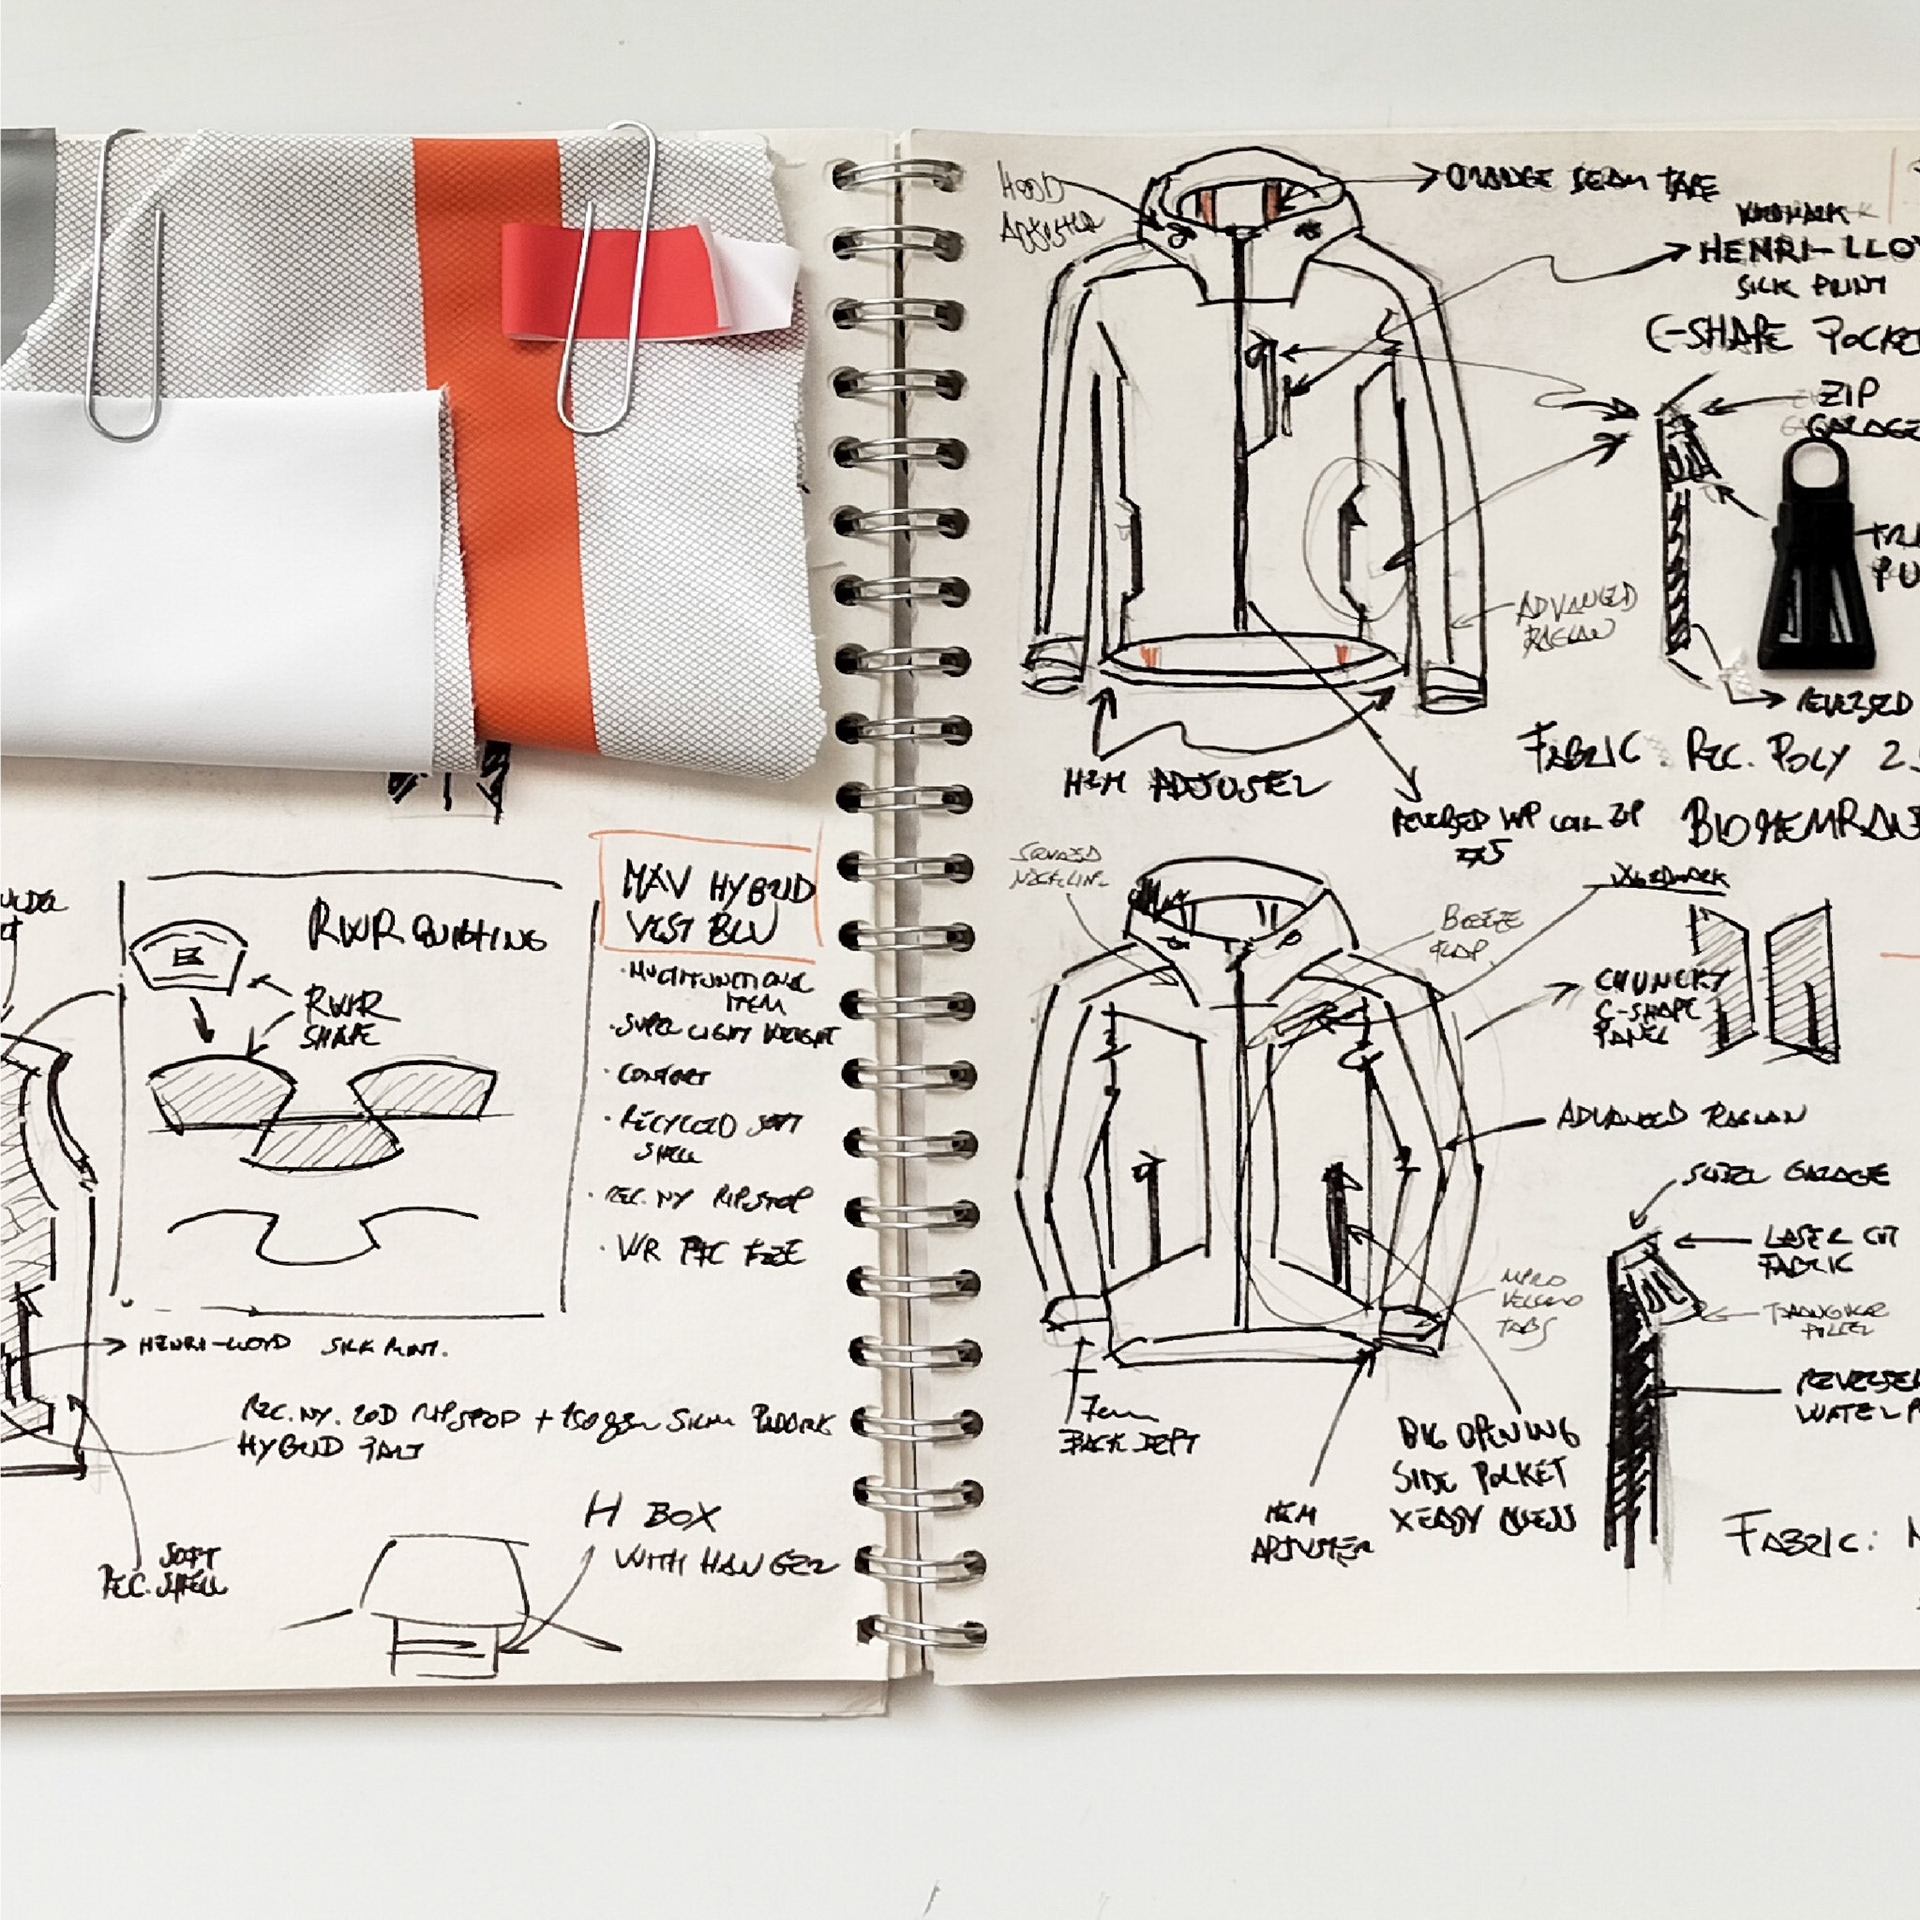 RWR QUILTING
RWR
SHAPE
MAV HYBRID
VEST BLU
· MULTIFUNCTIONAL
ITEM
· SUPER LIGHT WEIGHT
· COMFORT
· RECYCLED SOFT
SHELL
· REC. NY RIPSTOP
· WR PFC FREE
HENRI-LLOYD SILK PRINT.
REC. NY. 20D RIPSTOP + PADDING
HYBRID PART
SOFT
REC. SHELL
H BOX
WITH HANGER
HOOD
ADJUSTER
ORANGE SEAM TAPE
HENRI-LLOY
SILK PRINT
C-SHAPE POCKE
ZIP
GARAGE
ADVANCED
RAGLAN
REVERSED
HEM ADJUSTER
FABRIC: REC. POLY 2.5
REVERSED WP COIL ZIP
#5
BIOMEMBRAN
SQUARED
NECKLINE
WORDMARK
BREEZE
FLAP
CHUNCKY
C-SHAPE
PANEL
ADVANCED RAGLAN
LASER CUT
FABRIC
TRIANGULAR
PULLER
VELCRO
TABS
REVERSE
WATER P
7cm
BACK DEPT
BIG OPENING
SIDE POCKET
X EASY ACCESS
HEM
ADJUSTER
FABRIC: